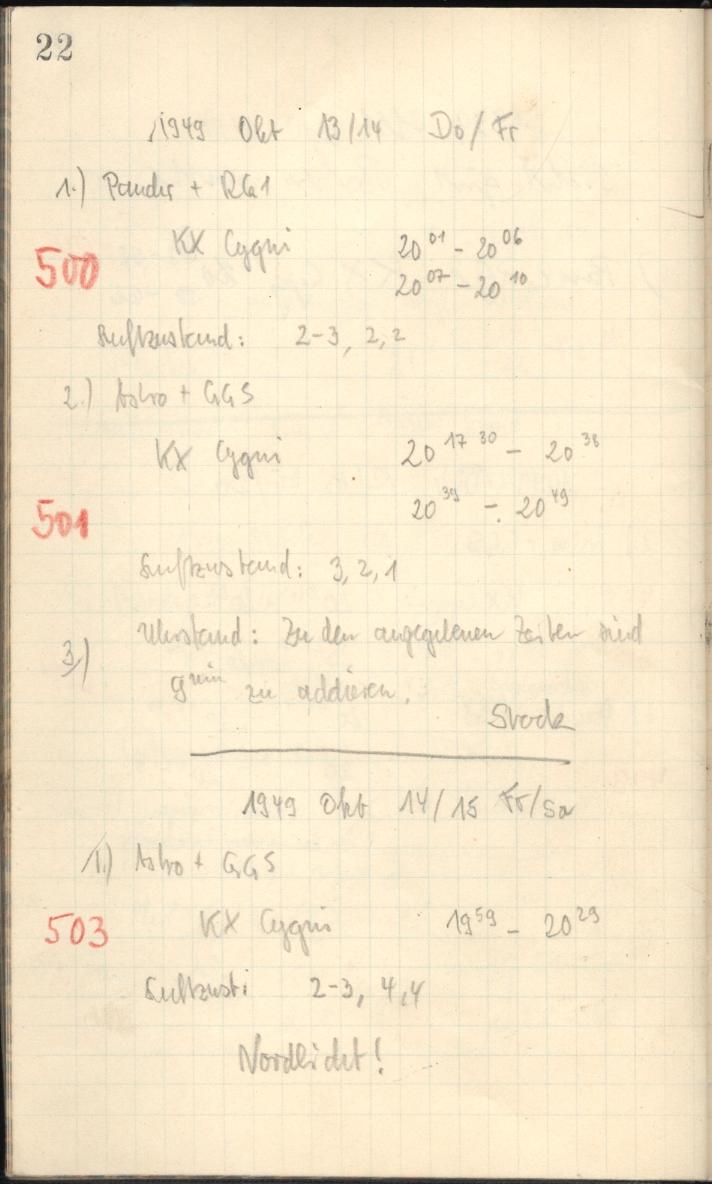 22
1949 Okt 13/14 Do/Fr
1.) Pander + RG1
KX Cygni 20⁰¹ - 20⁰⁶
500
20⁰⁷ - 20¹⁰
Luftzustand: 2-3, 2, 2
2.) Astro + GG5
KX Cygni 20¹⁷ ³⁰ - 20³⁸
501
20³⁹ - 20⁴⁹
Luftzustand: 3, 2, 1
3.) Uhrstand: Zu den angegebenen Zeiten sind
9ᵐⁱⁿ zu addieren.
Stock
1949 Okt 14/15 Fr/Sa
1.) Astro + GG5
503 KX Cygni 19⁵⁹ - 20²⁹
Luftzust: 2-3, 4, 4
Nordlicht!